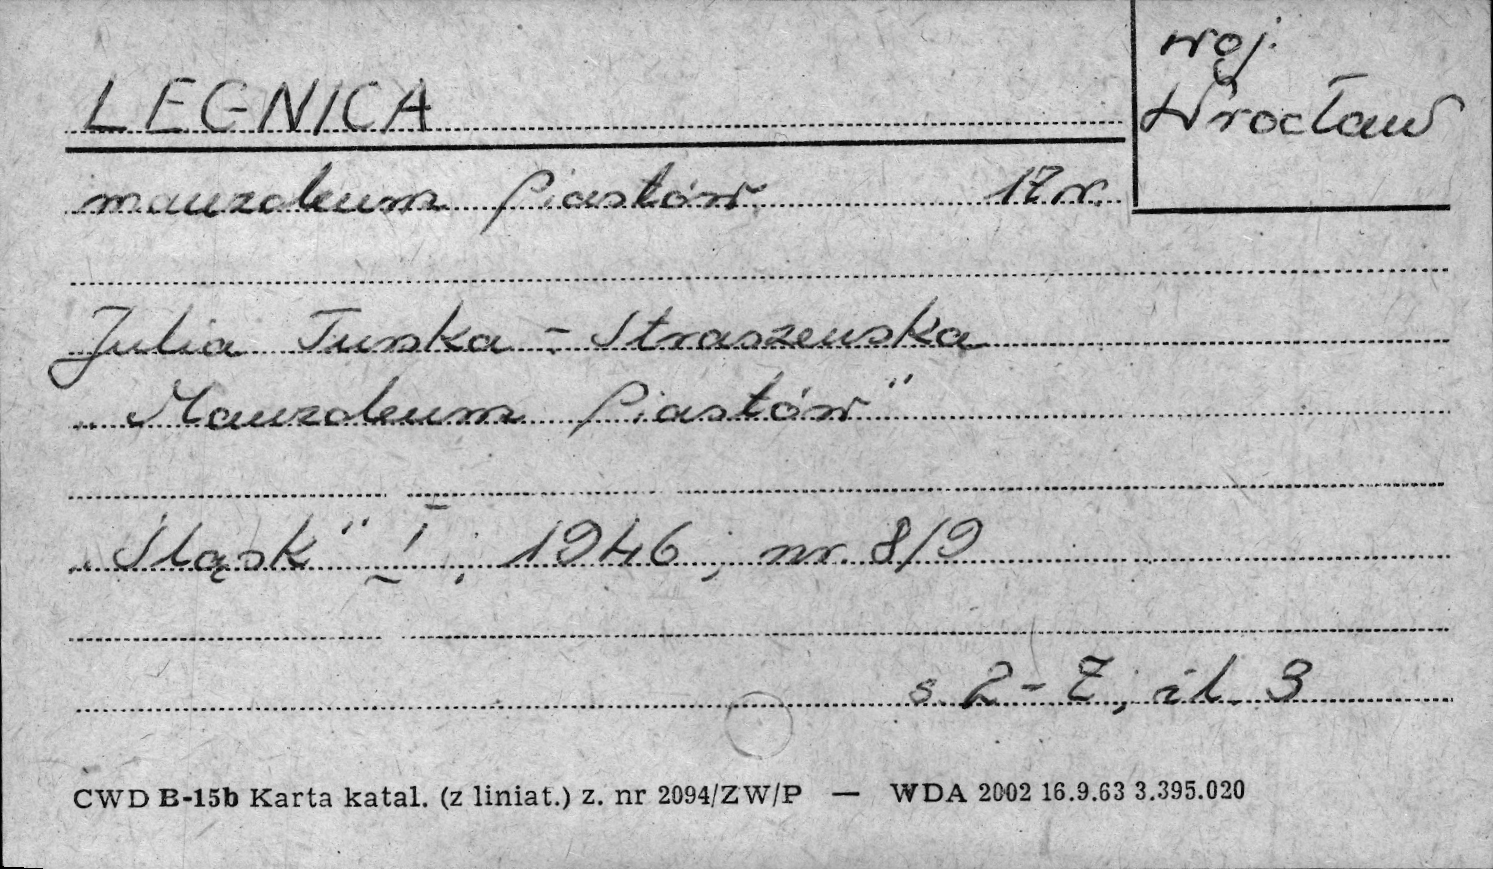 LEGNICA
woj.
Wrocław
mauzoleum Piastów 17 w.
Julia Turska - Straszewska
„Mauzoleum Piastów"
„Śląsk" I, 1946, nr. 8/9
s. 2-7, il. 3
CWD B-15b Karta katal. (z liniat.) z. nr 2094/ZW/P — WDA 2002 16.9.63 3.395.020